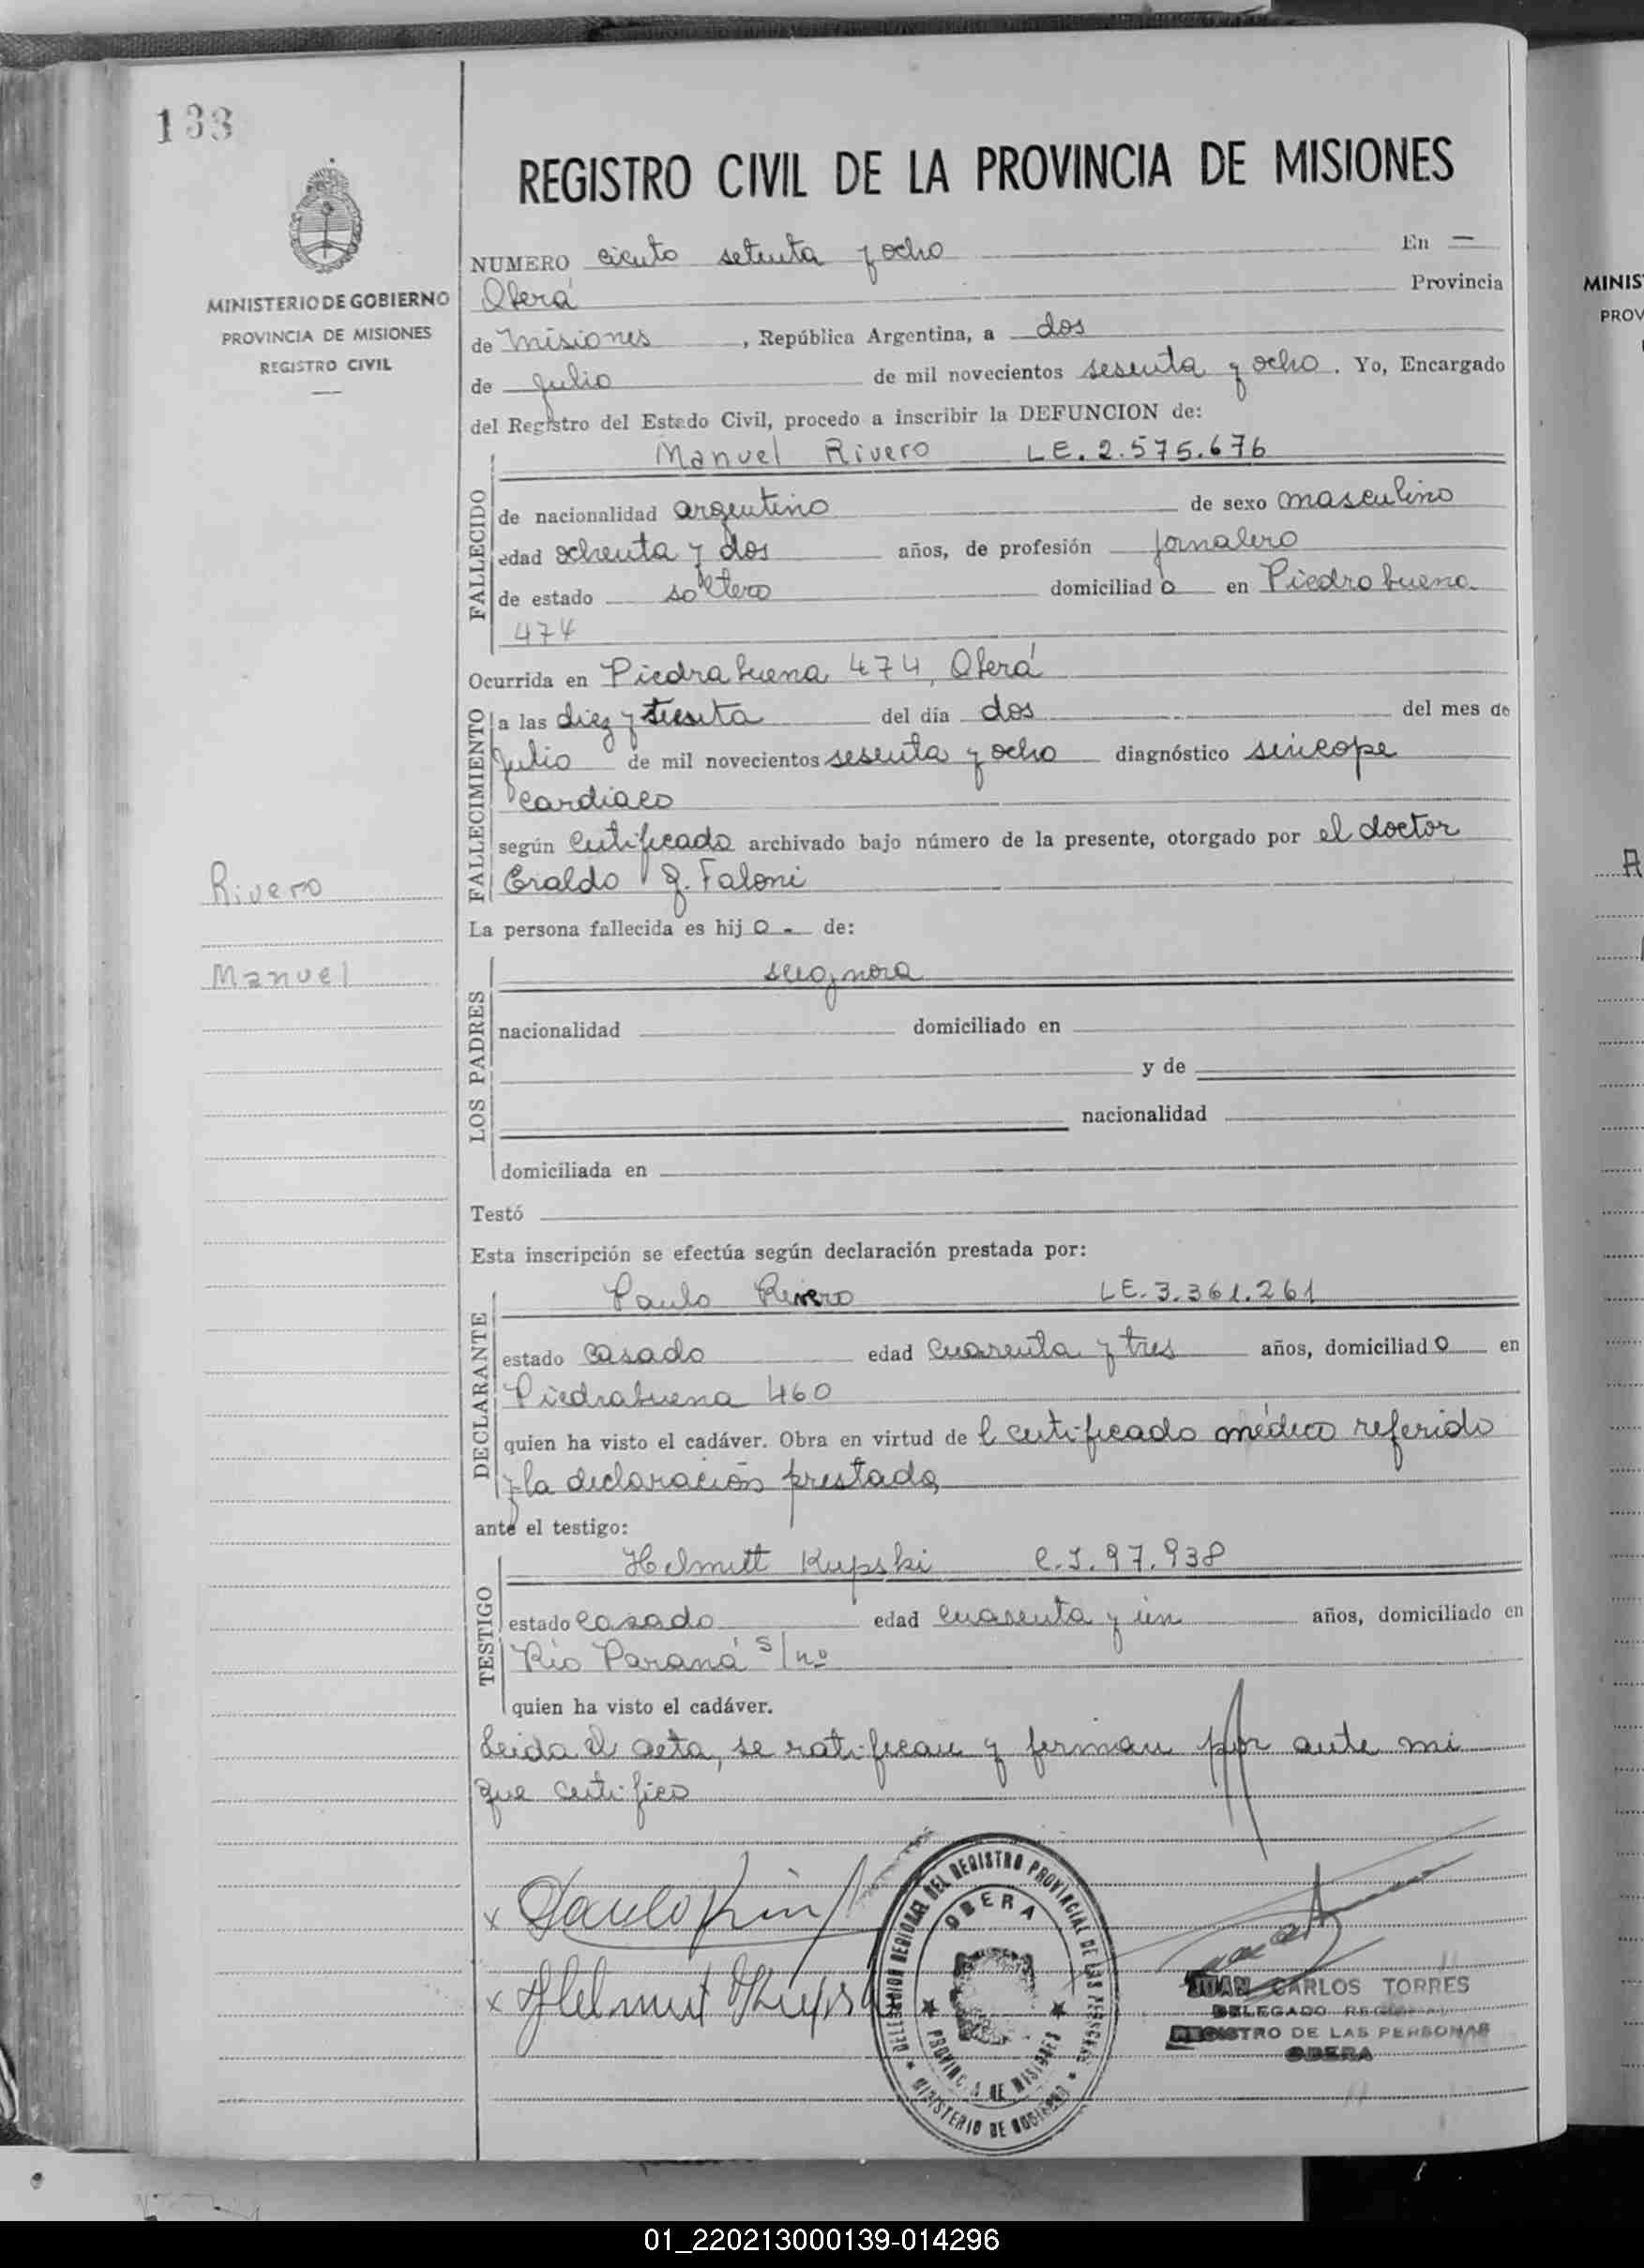 133
REGISTRO CIVIL DE LA PROVINCIA DE MISIONES
MINISTERIO DE GOBIERNO
PROVINCIA DE MISIONES
REGISTRO CIVIL
NUMERO ciento setenta y ocho En —
Oberá Provincia
de Misiones, República Argentina, a dos
de julio de mil novecientos sesenta y ocho. Yo, Encargado
del Registro del Estado Civil, procedo a inscribir la DEFUNCION de:
Manuel Rivero LE. 2.575.676
FALLECIDO
de nacionalidad argentino de sexo masculino
edad ochenta y dos años, de profesión jornalero
de estado soltero domiciliad o en Piedrabuena
474
Ocurrida en Piedrabuena 474, Oberá
FALLECIMIENTO
a las diez y treinta del día dos del mes de
julio de mil novecientos sesenta y ocho diagnóstico síncope
cardiaco
según certificado archivado bajo número de la presente, otorgado por el doctor
Eraldo J. Faloni
Rivero
Manuel
La persona fallecida es hij o - de:
LOS PADRES
se ignora
nacionalidad domiciliado en
y de
nacionalidad
domiciliada en
Testó
Esta inscripción se efectúa según declaración prestada por:
DECLARANTE
Paulo Rivero LE. 3.361.261
estado casado edad cuarenta y tres años, domiciliad o en
Piedrabuena 460
quien ha visto el cadáver. Obra en virtud de l certificado médico referido
y la declaración prestada,
ante el testigo:
TESTIGO
Helmutt Kupski C.I. 97.938
estado casado edad cuarenta y un años, domiciliado en
Río Paraná s/nº
quien ha visto el cadáver.
Leida el acta, se ratifican y firman por ante mi
que certifico
x Paulo
x Helmut Kupski
DELEGACION REGIONAL DEL REGISTRO PROVINCIAL DE LAS PERSONAS
OBERA
PROVINCIA DE MISIONES
MINISTERIO DE GOBIERNO
JUAN CARLOS TORRES
DELEGADO REGIONAL
REGISTRO DE LAS PERSONAS
OBERA
MINIS
PROV
01_220213000139-014296